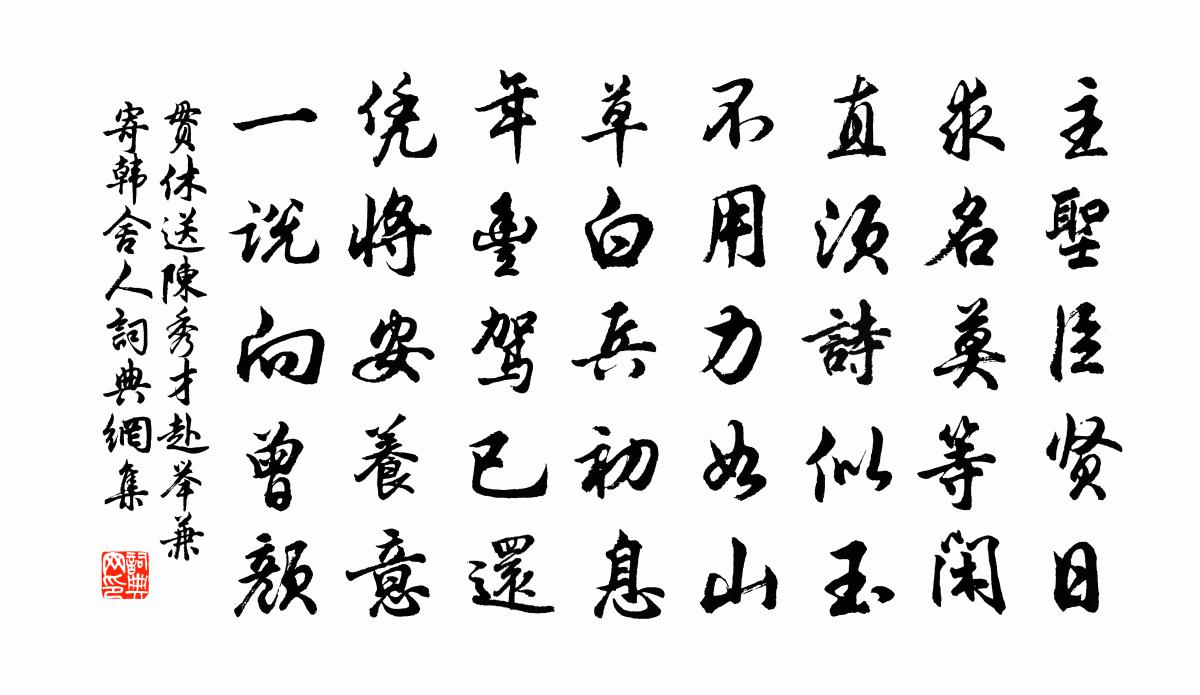 主聖臣贤日
求名莫等闲
直须詩似玉
不用力如山
草白兵初息
年豊駕已還
凭將安養意
一説向曾顔
贯休送陳秀才赴举兼
寄韩舍人詞典網集
詞典网印